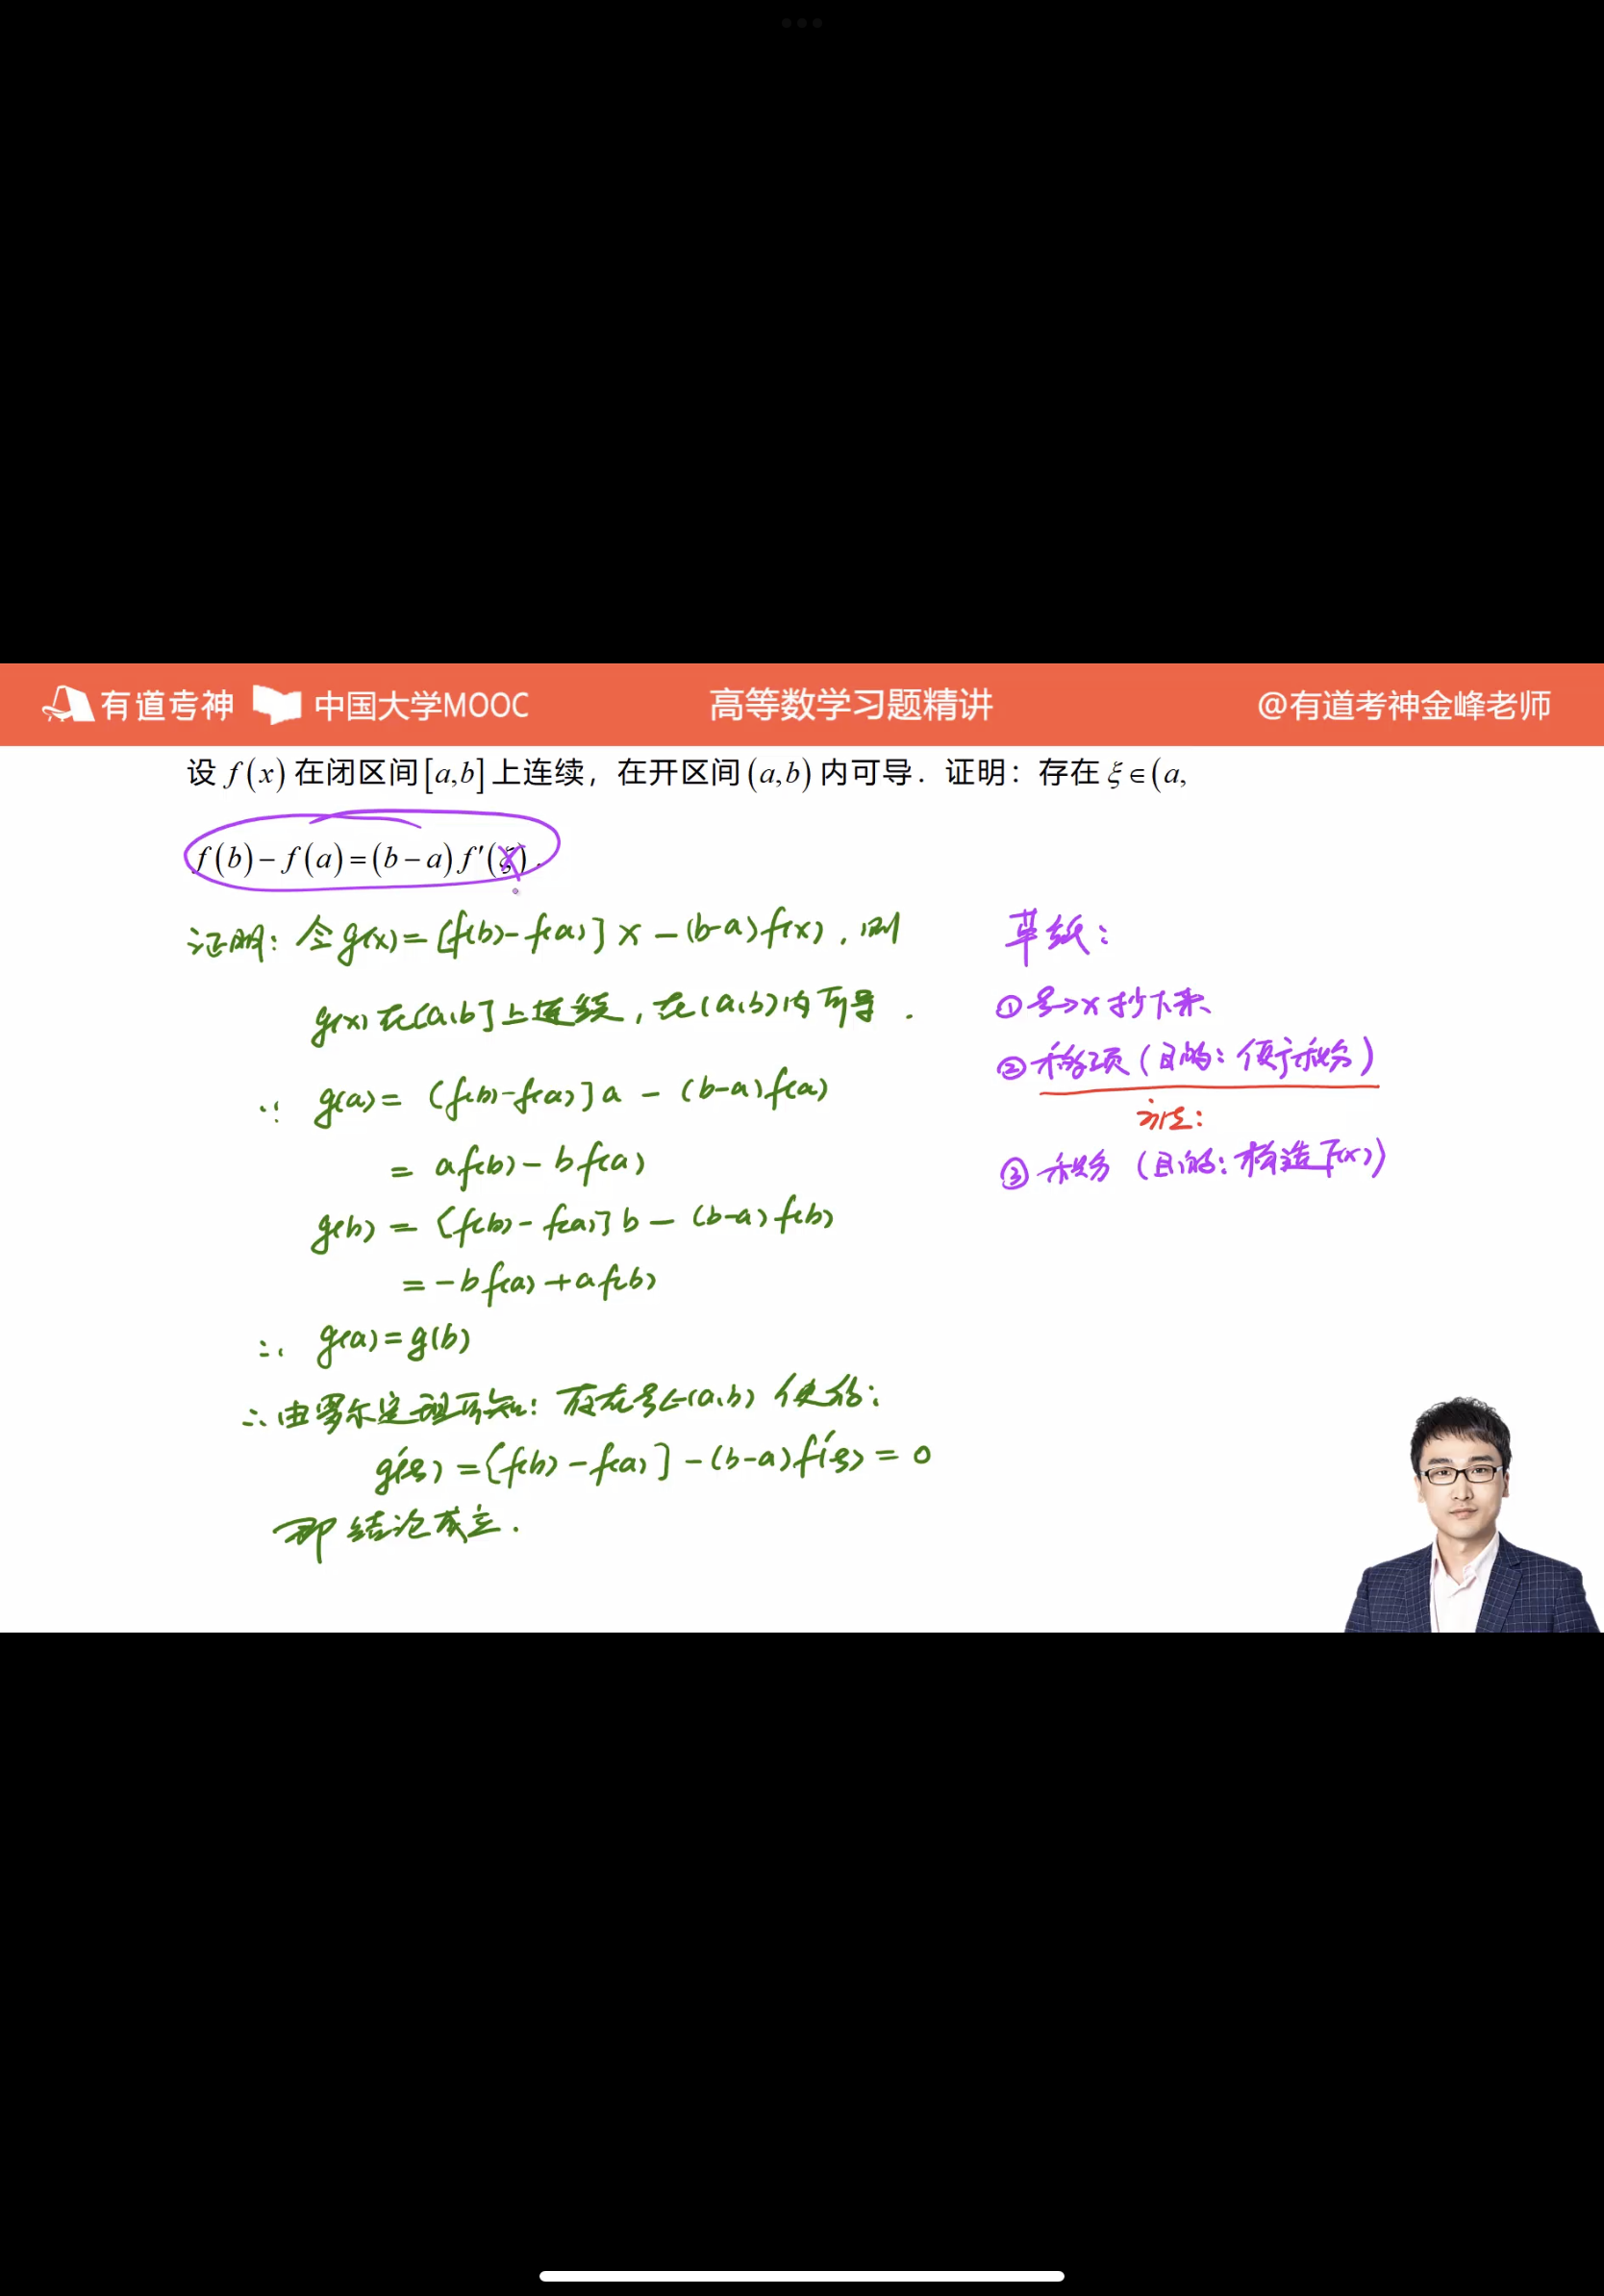 有道考神 中国大学MOOC 高等数学习题精讲 @有道考神金峰老师
设 f(x) 在闭区间 [a,b] 上连续，在开区间 (a,b) 内可导．证明：存在 ξ∈(a,
f(b)−f(a)=(b−a)f′(ξ)．
x
证明：令 g(x)=[f(b)-f(a)]x-(b-a)f(x)，则
g(x)在[a,b]上连续，在(a,b)内可导．
∵ g(a)=[f(b)-f(a)]a-(b-a)f(a)
=af(b)-bf(a)
g(b)=[f(b)-f(a)]b-(b-a)f(b)
=-bf(a)+af(b)
∴ g(a)=g(b)
∴由罗尔定理可知：存在ξ∈(a,b)使得：
g′(ξ)=[f(b)-f(a)]-(b-a)f′(ξ)=0
即结论成立．
草纸：
①ξ→x抄下来
②移项（目的：便于积分）
方法：
③积分（目的：构造F(x)）